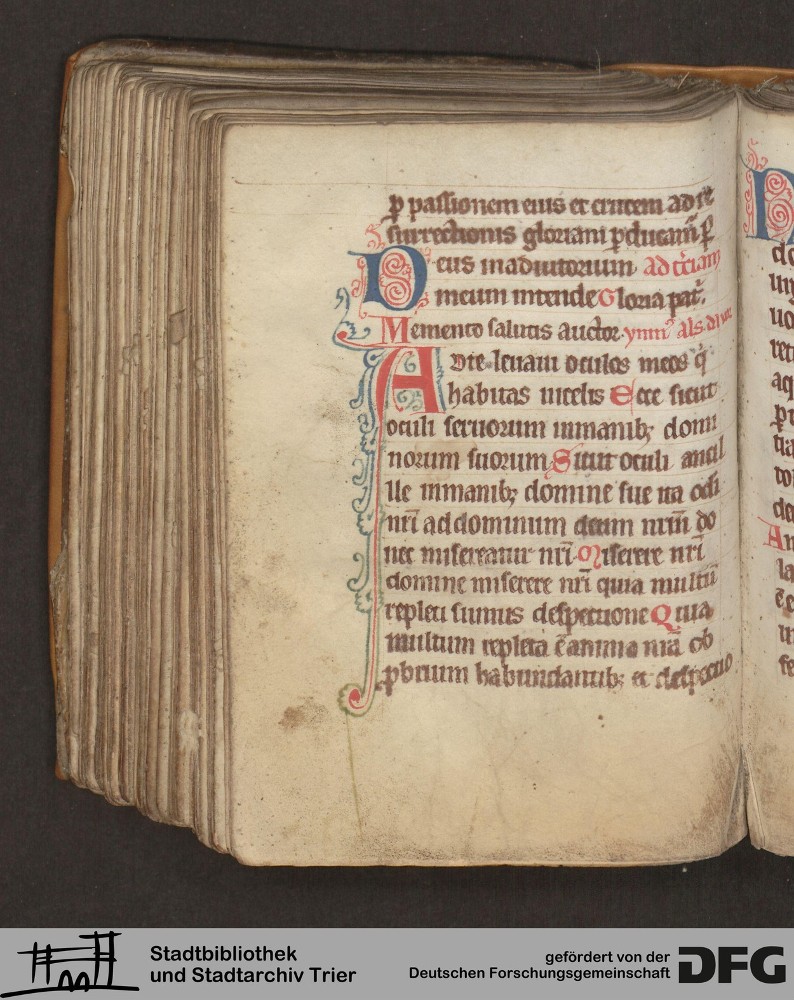 ꝑ passionem eius et crucem ad re
surrectionis gloriam ꝑducam̄ ꝑ
Deus in adiutorium ad t̄ciam
meum intende Gloria pat᷑.
Memento salutis auctor ymn᷑ als
Ad te leuaui oculos meos q̄
habitas in celis Ecce sicut
oculi seruorum in manibꝫ domi
norum suorum Sicut oculi ancil
lle in manibꝫ domine sue ita oc̄li
nr̄i ad dominum deum nrm̄ do
nec misereatur nr̄i Miserere nr̄i
domine miserere nr̄i quia multū
repleti sumus despectione Quia
multum repleta ē anima nr̄a ob
ꝓbrium habundantibꝫ et despectio
Stadtbibliothek
und Stadtarchiv Trier
gefördert von der
Deutschen Forschungsgemeinschaft
DFG